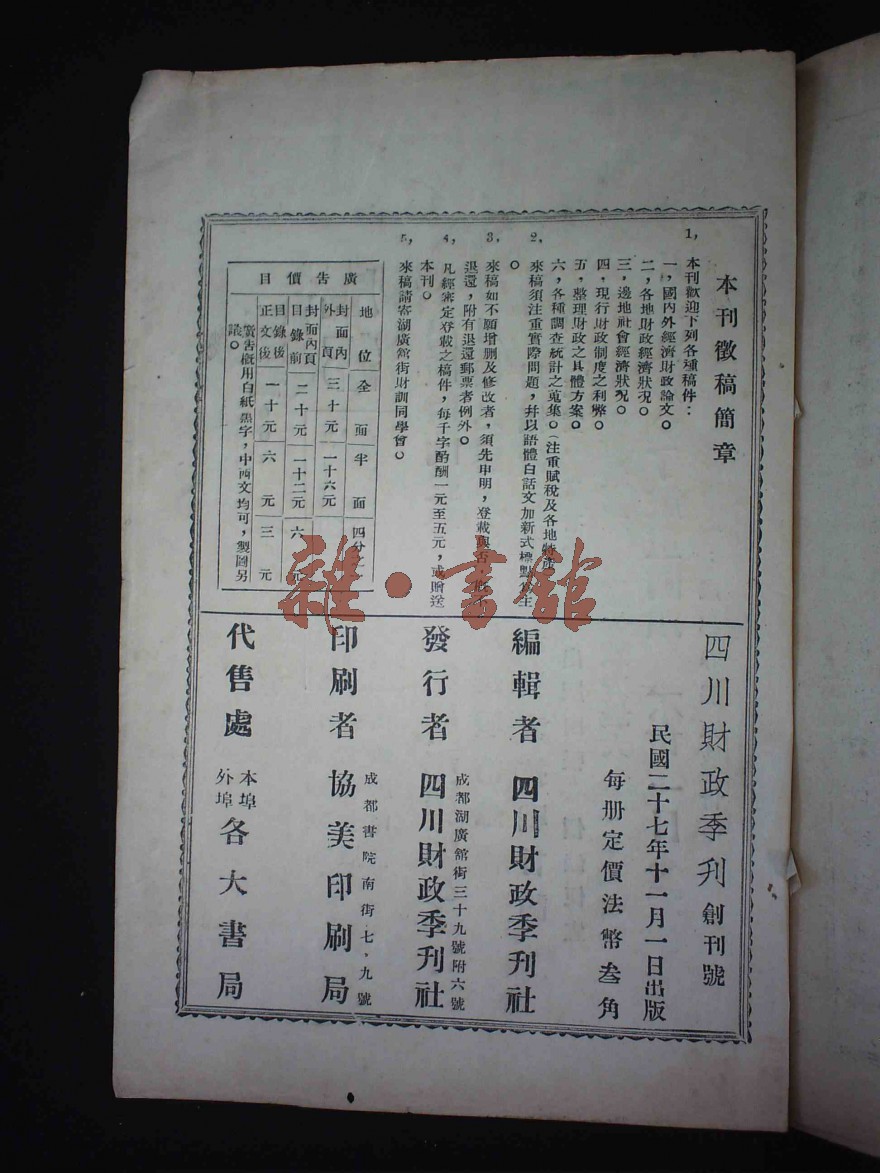 本刊徵稿簡章
1, 本刊歡迎下列各種稿件：
一，國內外經濟財政論文。
二，各地財政經濟狀況。
三，邊地社會經濟狀況。
四，現行財政制度之利弊。
五，整理財政之具體方案。
六，各種調查統計之蒐集。（注重賦稅及各地特產
2, 來稿須注重實際問題，幷以語體白話文加新式標點
。
3, 來稿如不願增删及修改者，須先申明，登載與否，概不
退還，附有退還郵票者例外。
4, 凡經審定登載之稿件，每千字酌酬一元至五元，或贈送
本刊。
5, 來稿請寄湖廣館街財訓同學會。
廣告價目
地位 全面 半面 四分
封面內外頁 三十元 一十六元
封面內頁目錄前 二十元 一十二元 六元
目錄後正文後 一十元 六元 三元
廣告概用白紙黑字，中西文均可，製圖另
議。
四川財政季刊創刊號
民國二十七年十一月一日出版
每册定價法幣叁角
編輯者 四川財政季刊社
成都湖廣舘街三十九號附六號
發行者 四川財政季刊社
成都書院南街七，九號
印刷者 協美印刷局
代售處 本埠外埠各大書局
雜·書舘